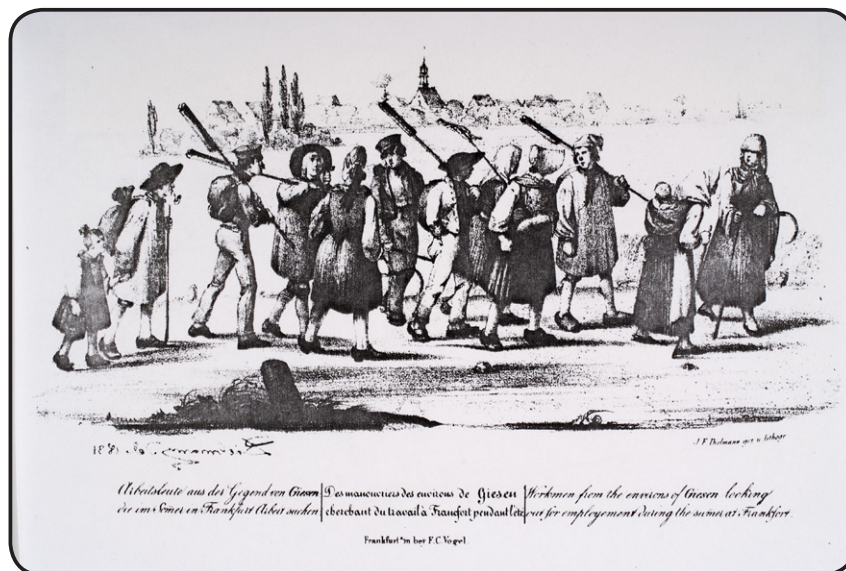 J. F. Dielmann gez u lithogr
Arbeitsleute aus der Gegend von Giesen
die im Somer in Frankfurt Arbeit suchen
Des manouvriers des environs de Giesen
cherchant du travail à Francfort pendant l'été
Workmen from the environs of Giesen looking
out for employement during the sumer at Frankfort.
Frankfurt a/m bey F. C. Vogel.